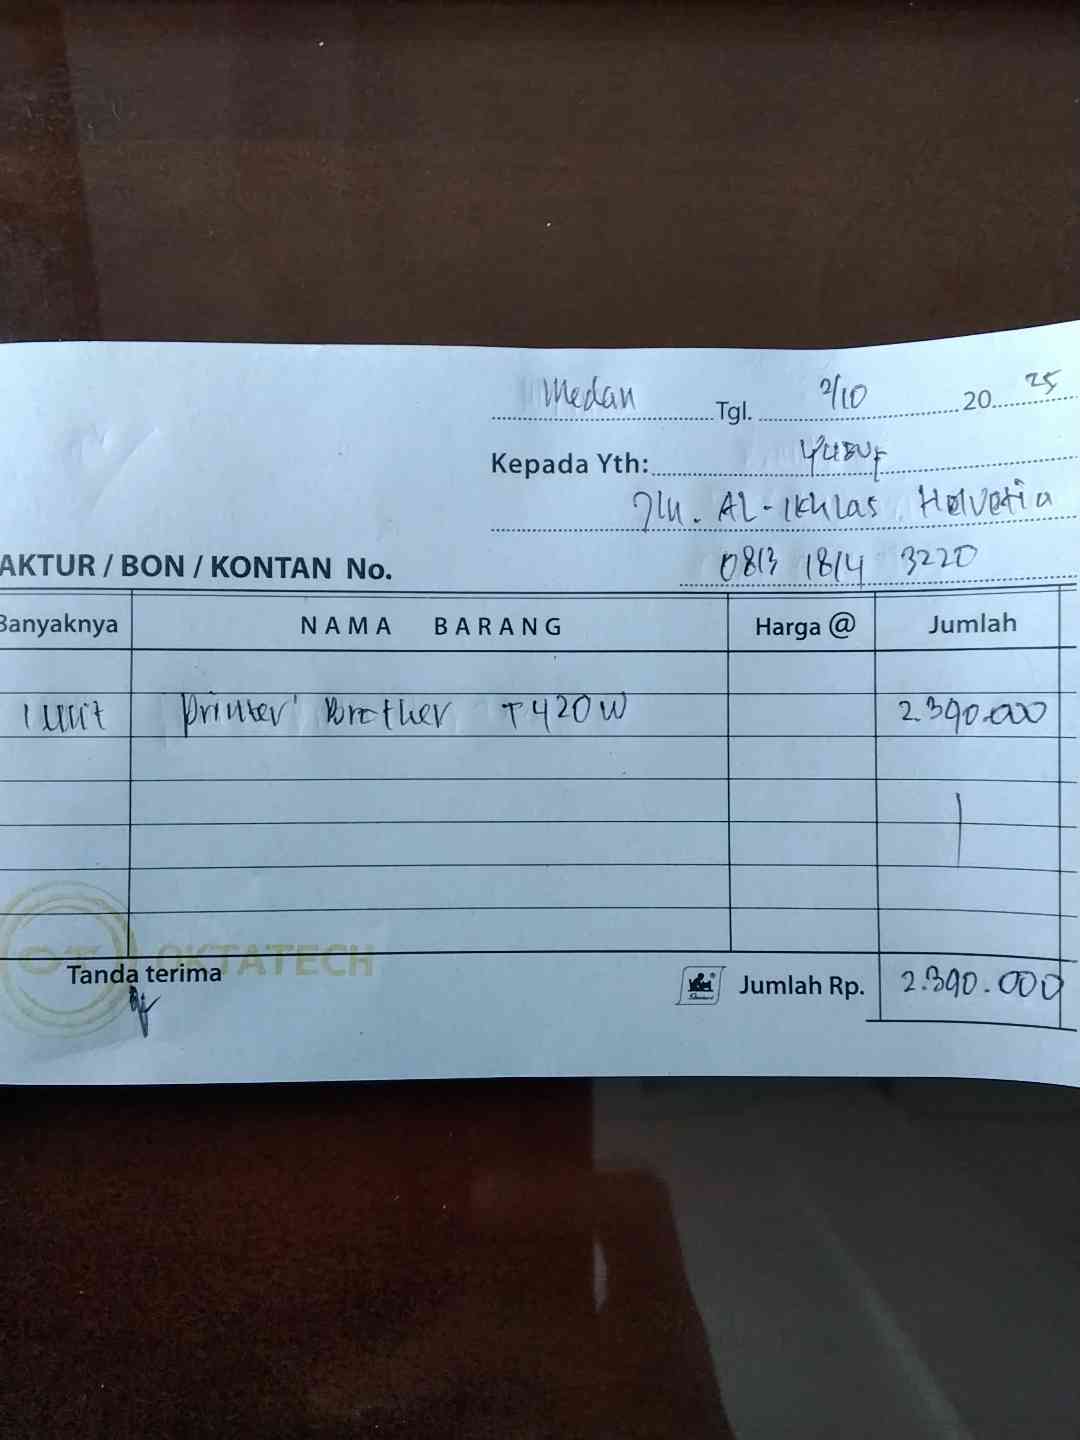 Medan Tgl. 2/10 2025
Kepada Yth: Yusuf
Jln. AL-Ikhlas Helvetia
0813 1814 3220
AKTUR / BON / KONTAN No.
Banyaknya NAMA BARANG Harga @ Jumlah
1 unit printer Brother T420W 2.390.000
OT OKTATECH
Tanda terima Jumlah Rp. 2.390.000